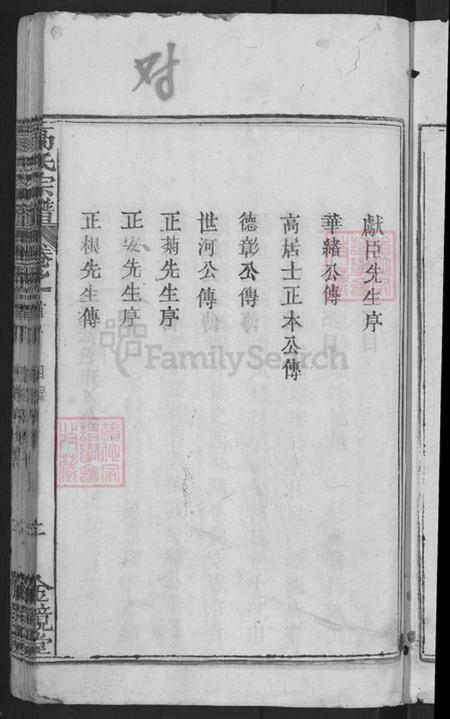 对
獻臣先生序
華緒公傳
高居士正本公傳
德彰公傳
世河公傳
正菊先生序
正安先生序
正根先生傳
高氏宗譜
卷之一
金鏡堂
FamilySearch